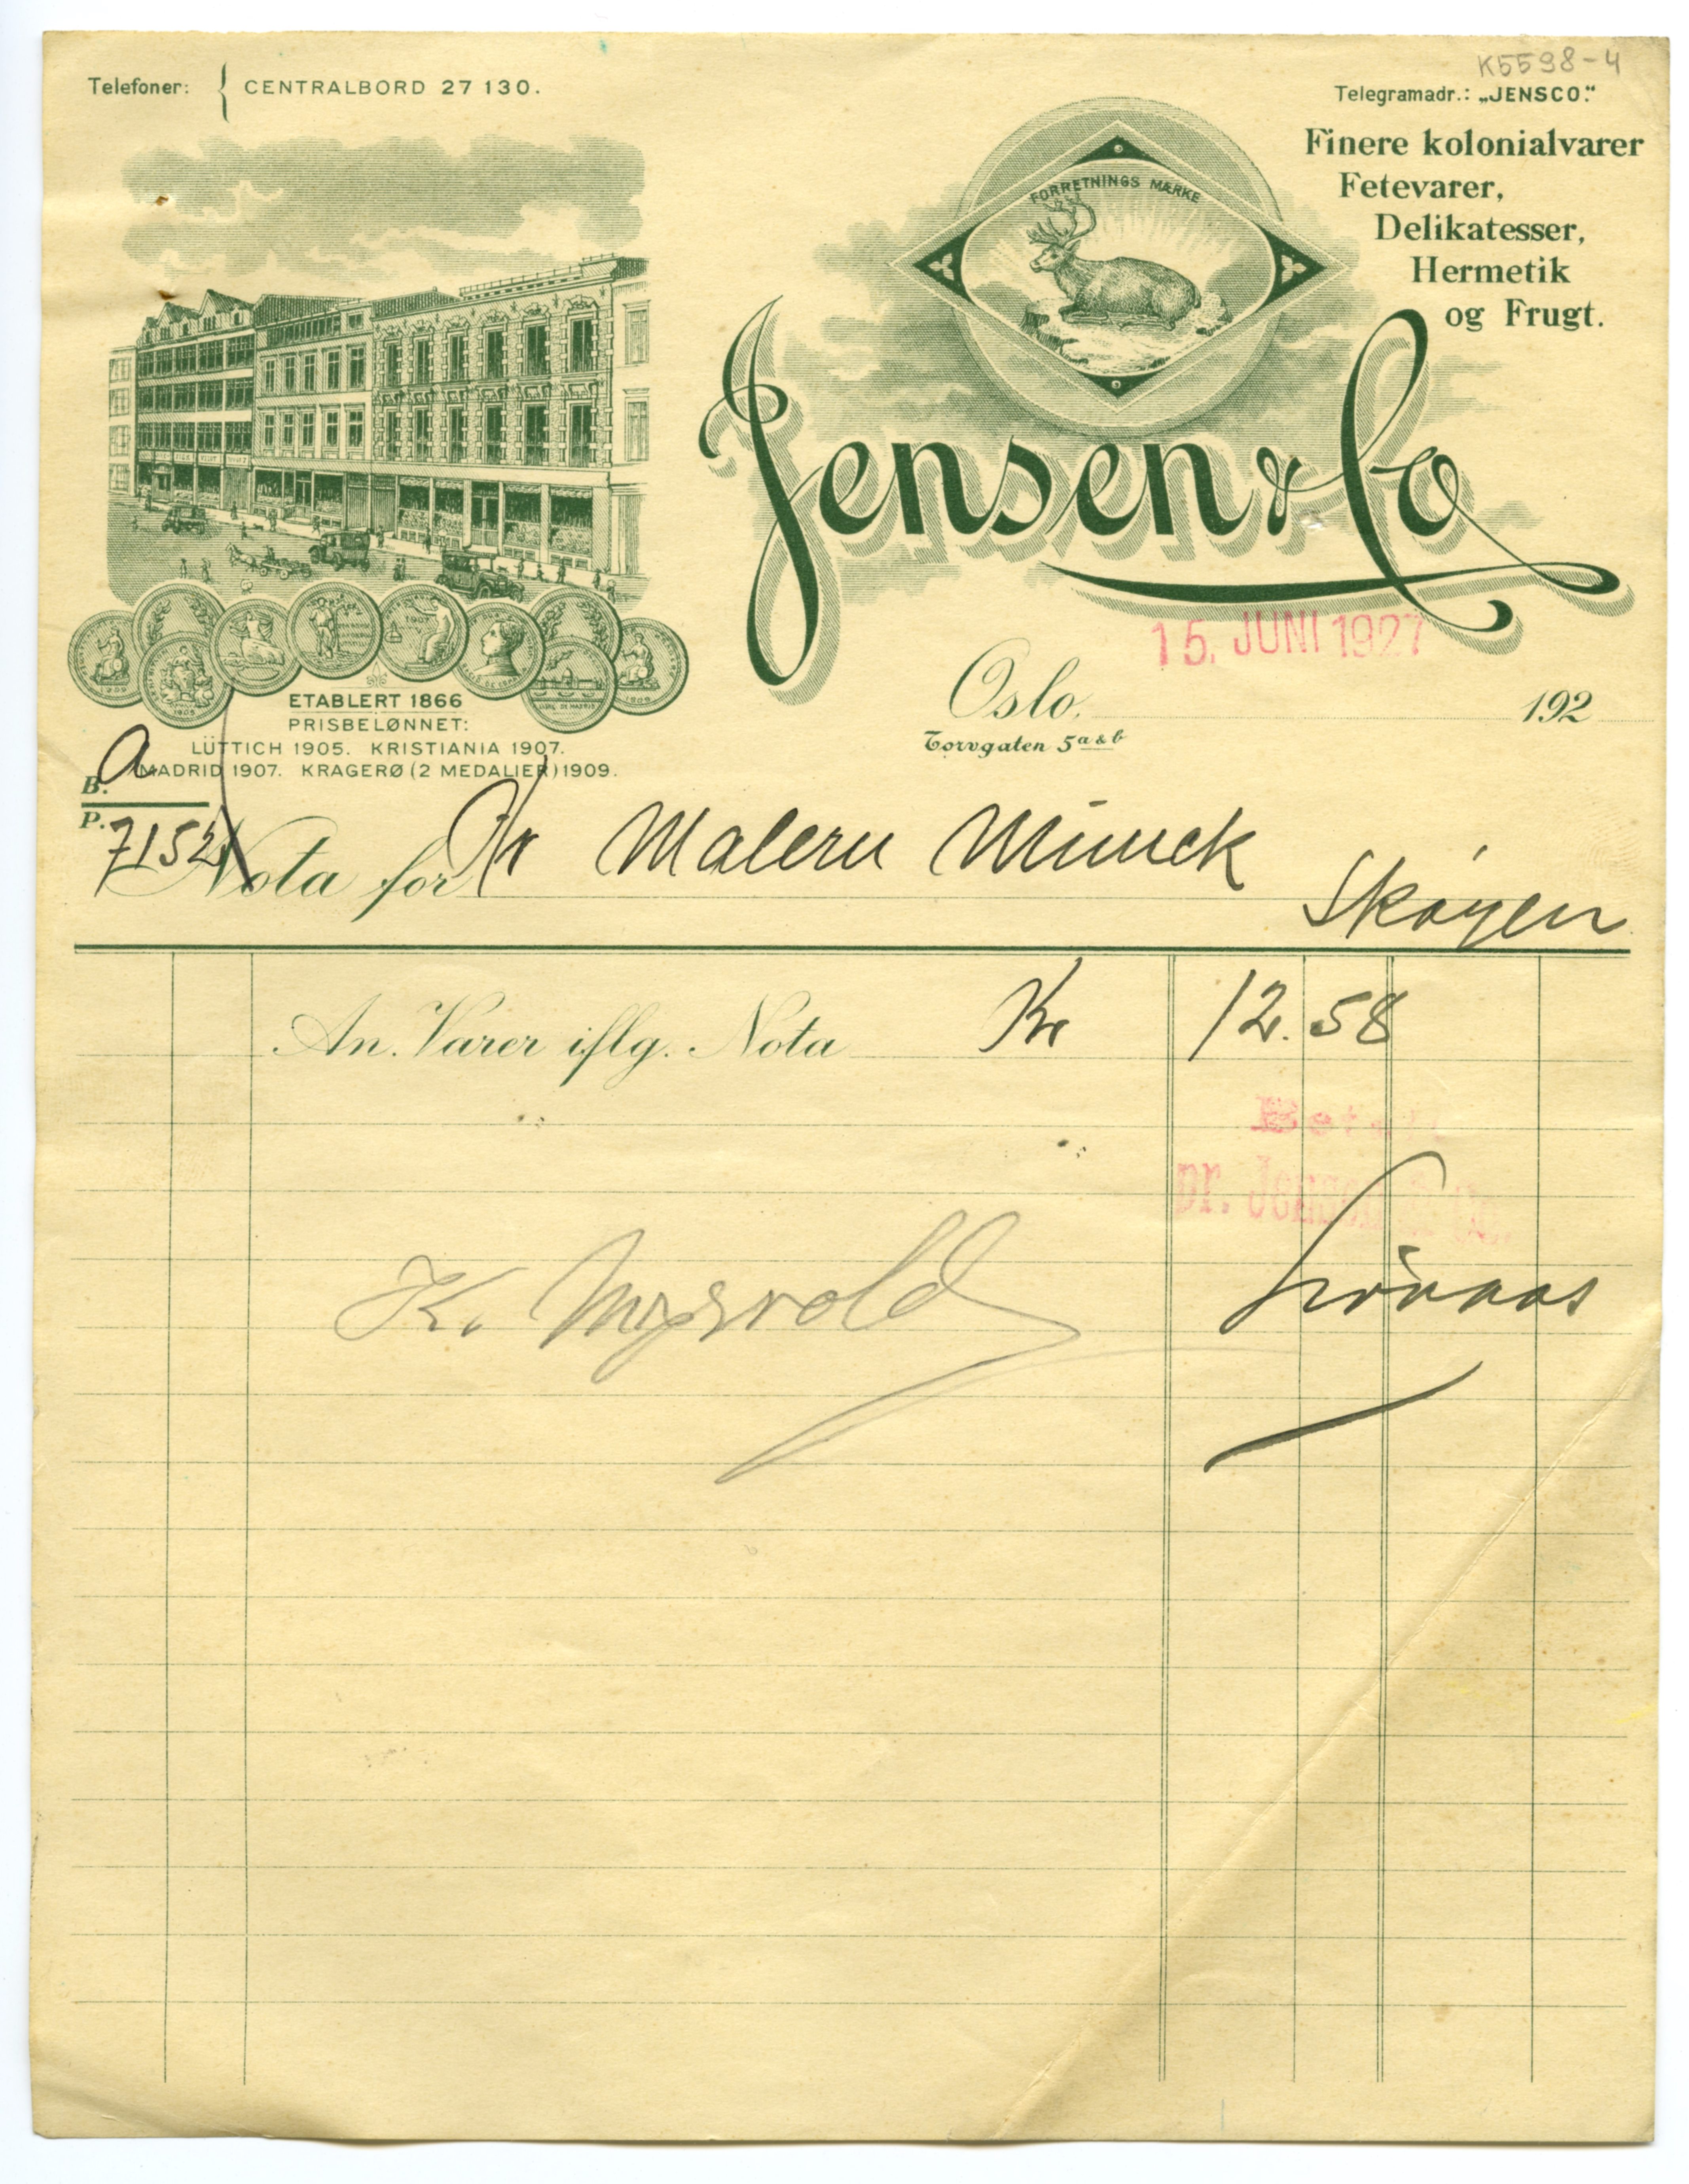 K5598-4
Telefoner: { CENTRALBORD 27 130.
Telegramadr.: „JENSCO."
Finere kolonialvarer
Fetevarer,
Delikatesser,
Hermetik
og Frugt.
FORRETNINGS MÆRKE
Jensen & Co
15. JUNI 1927
Oslo, 192
Torvgaten 5 a & b
ETABLERT 1866
PRISBELØNNET:
LÜTTICH 1905. KRISTIANIA 1907.
MADRID 1907. KRAGERØ (2 MEDALIER) 1909.
B. a
P. 7152
Nota for Hr Maleru Munck
Skøyen
An. Varer iflg. Nota Kr 12.58
Betalt
pr. Jensen & Co.
K. Mysvold